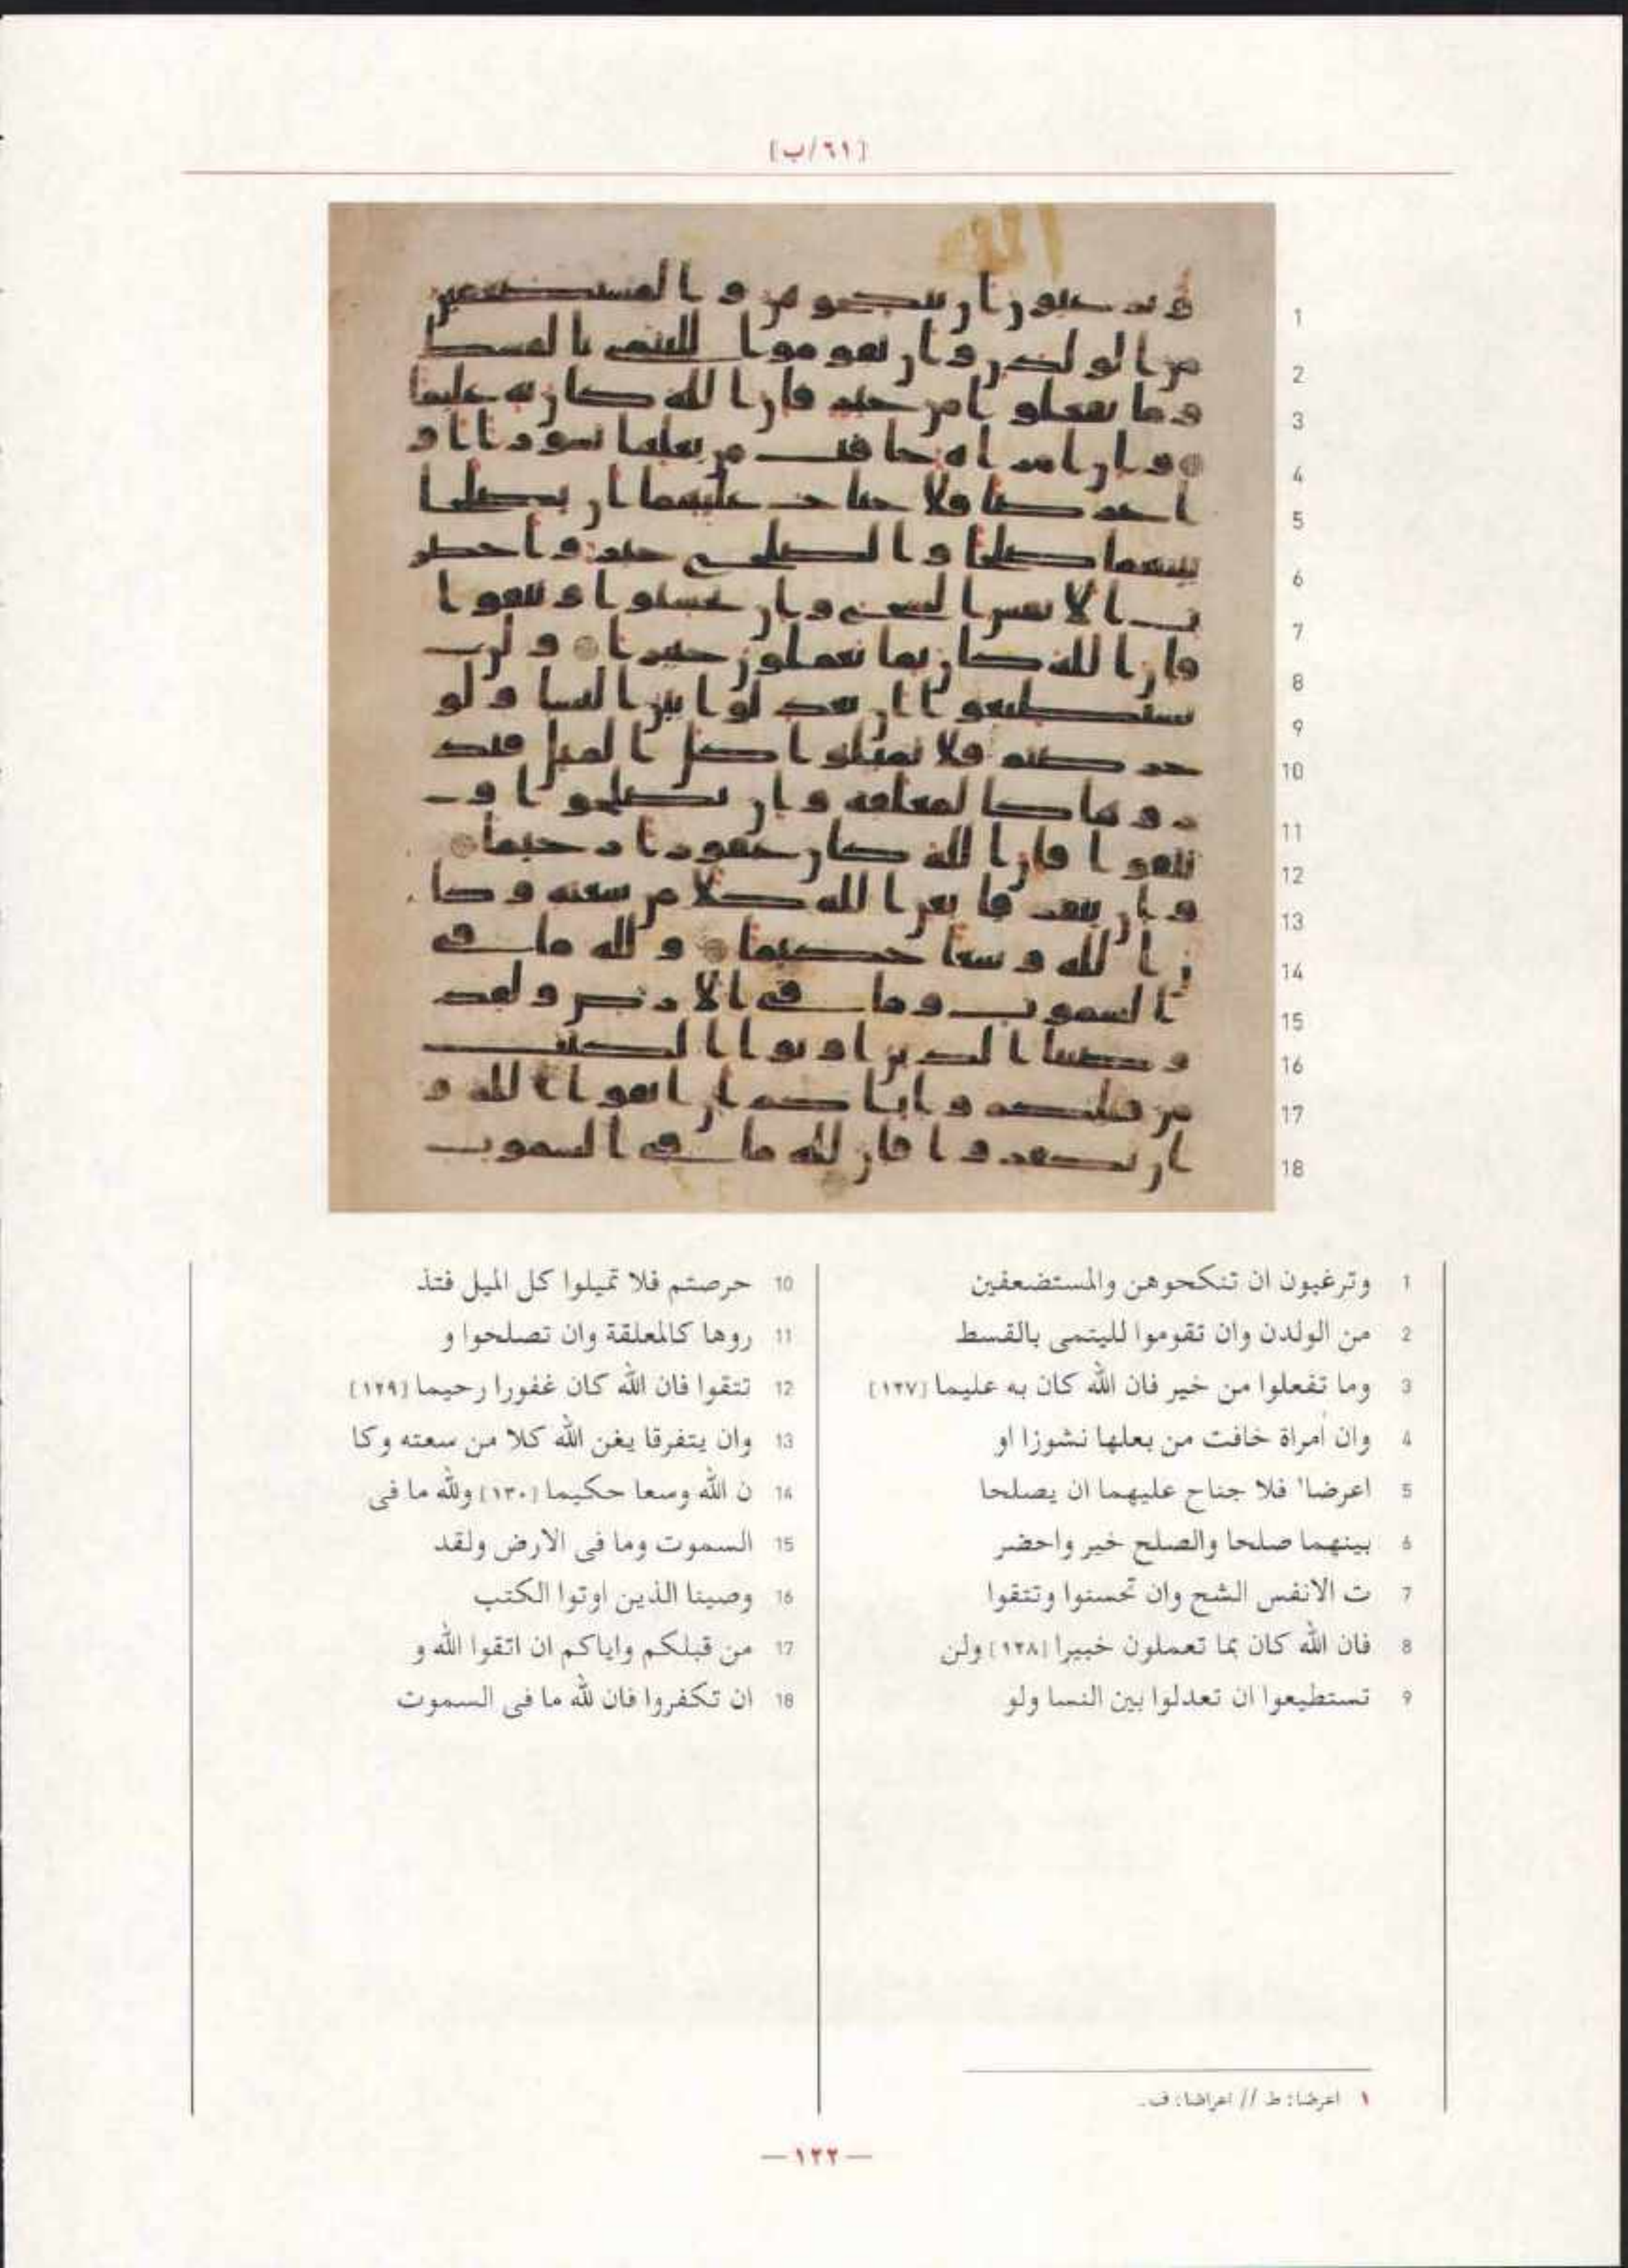 [٦١/ب]
1 وترغبون ان تنكحوهن والمستضعفين
2 من الولدن وان تقوموا لليتمى بالقسط
3 وما تفعلوا من خير فان الله كان به عليما [١٢٧]
4 وان امراة خافت من بعلها نشوزا او
5 اعرضا١ فلا جناح عليهما ان يصلحا
6 بينهما صلحا والصلح خير واحضر
7 ت الانفس الشح وان تحسنوا وتتقوا
8 فان الله كان بما تعملون خبيرا [١٢٨] ولن
9 تستطيعوا ان تعدلوا بين النسا ولو
10 حرصتم فلا تميلوا كل الميل فتذ
11 روها كالمعلقة وان تصلحوا و
12 تتقوا فان الله كان غفورا رحيما [١٢٩]
13 وان يتفرقا يغن الله كلا من سعته وكا
14 ن الله وسعا حكيما [١٣٠] ولله ما فى
15 السموت وما فى الارض ولقد
16 وصينا الذين اوتوا الكتب
17 من قبلكم واياكم ان اتقوا الله و
18 ان تكفروا فان لله ما فى السموت
١ اعرضا: ط // اعراضا: ف.
— ١٢٢ —